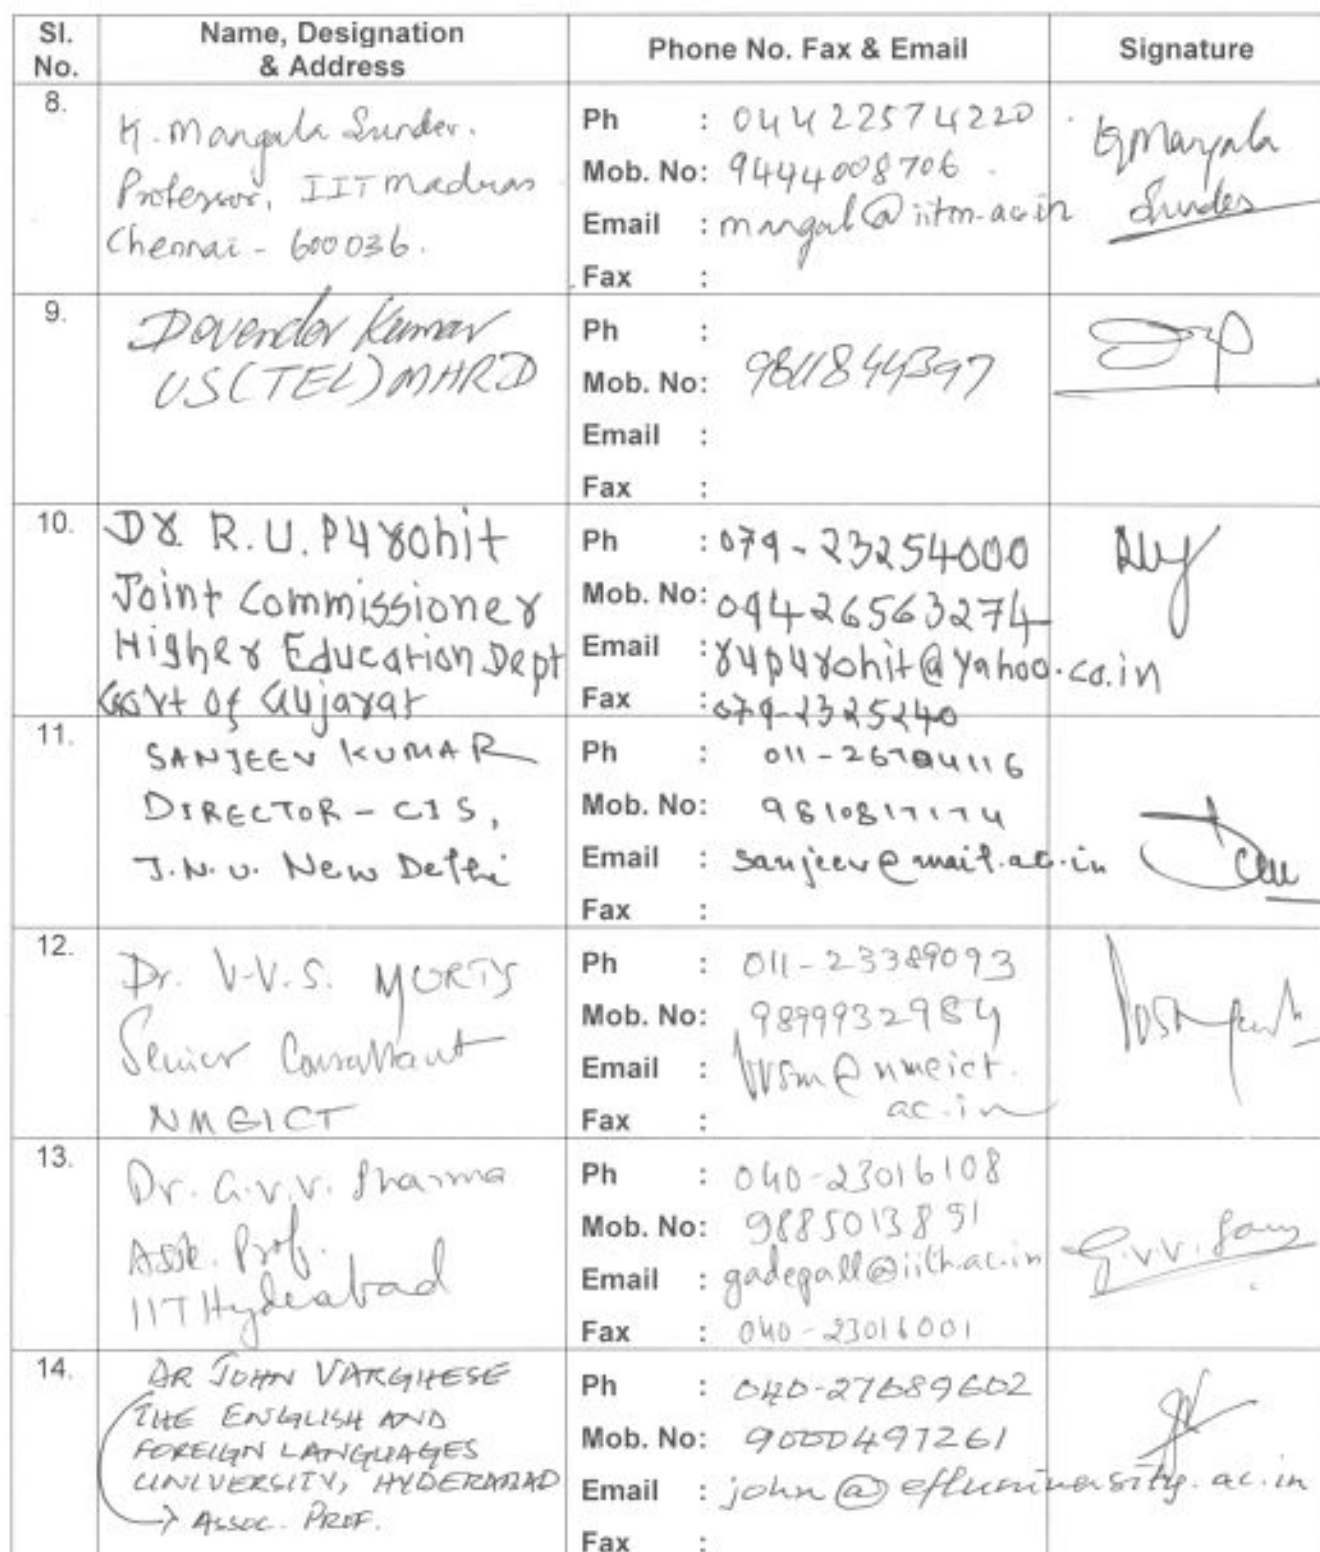 Sl. No. Name, Designation & Address Phone No. Fax & Email Signature
8.
K. Mangala Sunder.
Professor, IIT Madras
Chennai - 600036.
Ph : 044 22574220
Mob. No: 9444008706
Email : mangal@iitm.ac.in
Fax :
K Mangala
Sunder
9.
Devender Kumar
US(TEL) MHRD
Ph :
Mob. No: 9811844397
Email :
Fax :
10.
Dr. R.U. Purohit
Joint Commissioner
Higher Education Dept
Govt of Gujarat
Ph : 079-23254000
Mob. No: 09426563274
Email : rupurohit@yahoo.co.in
Fax : 079-2325240
11.
SANJEEV KUMAR
DIRECTOR - CIS,
J.N.U. New Delhi
Ph : 011-26704116
Mob. No: 9810817174
Email : sanjeev@mail.ac.in
Fax :
12.
Dr. V.V.S. MURTY
Senior Consultant
NMEICT
Ph : 011-23389093
Mob. No: 9899932984
Email : vvsm@nmeict.
ac.in
Fax :
13.
Dr. G.V.V. Sharma
Asst. Prof.
IIT Hyderabad
Ph : 040-23016108
Mob. No: 9885013891
Email : gadepall@iith.ac.in
Fax : 040-23016001
G.V.V.
14.
DR JOHN VARGHESE
THE ENGLISH AND
FOREIGN LANGUAGES
UNIVERSITY, HYDERABAD
→ ASSOC. PROF.
Ph : 040-27689602
Mob. No: 9000497261
Email : john@efluniversity.ac.in
Fax :